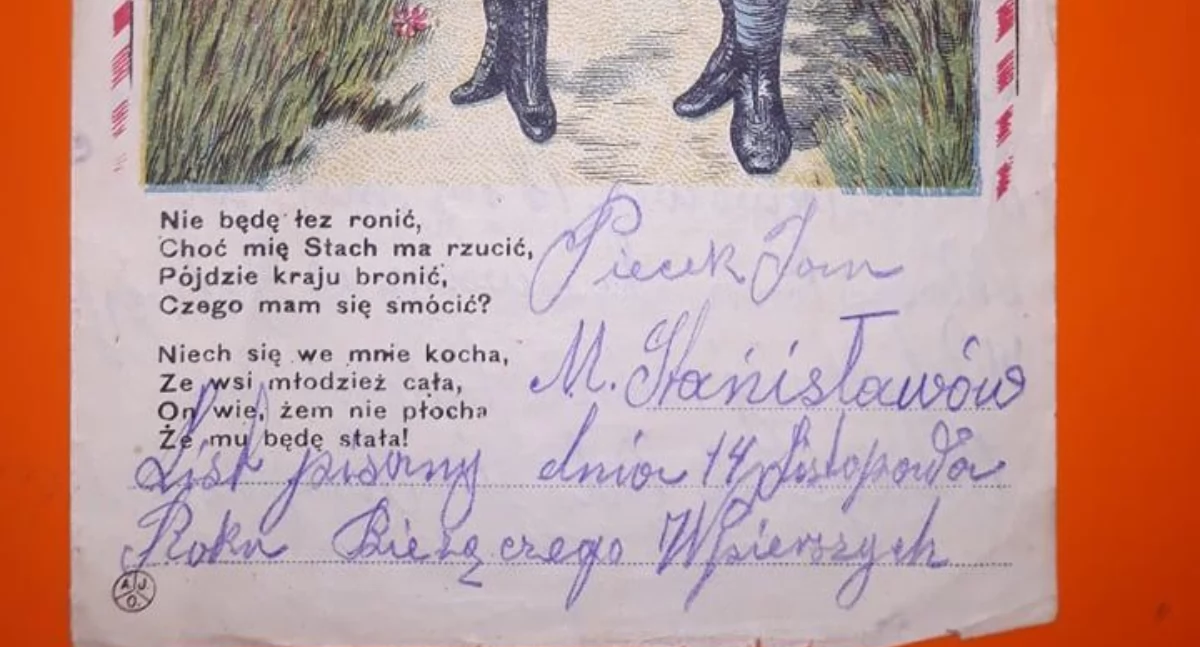 Nie będę łez ronić,
Choć mię Stach ma rzucić,
Pójdzie kraju bronić,
Czego mam się smócić?
Piecek Jan
Niech się we mnie kocha,
Ze wsi młodzież cała,
On wie, żem nie płocha
Że mu będę stała!
M. Stańisławów
List pisany dnia 14 Listopada
Roku Bieżączego WPierszych
A. J. O.